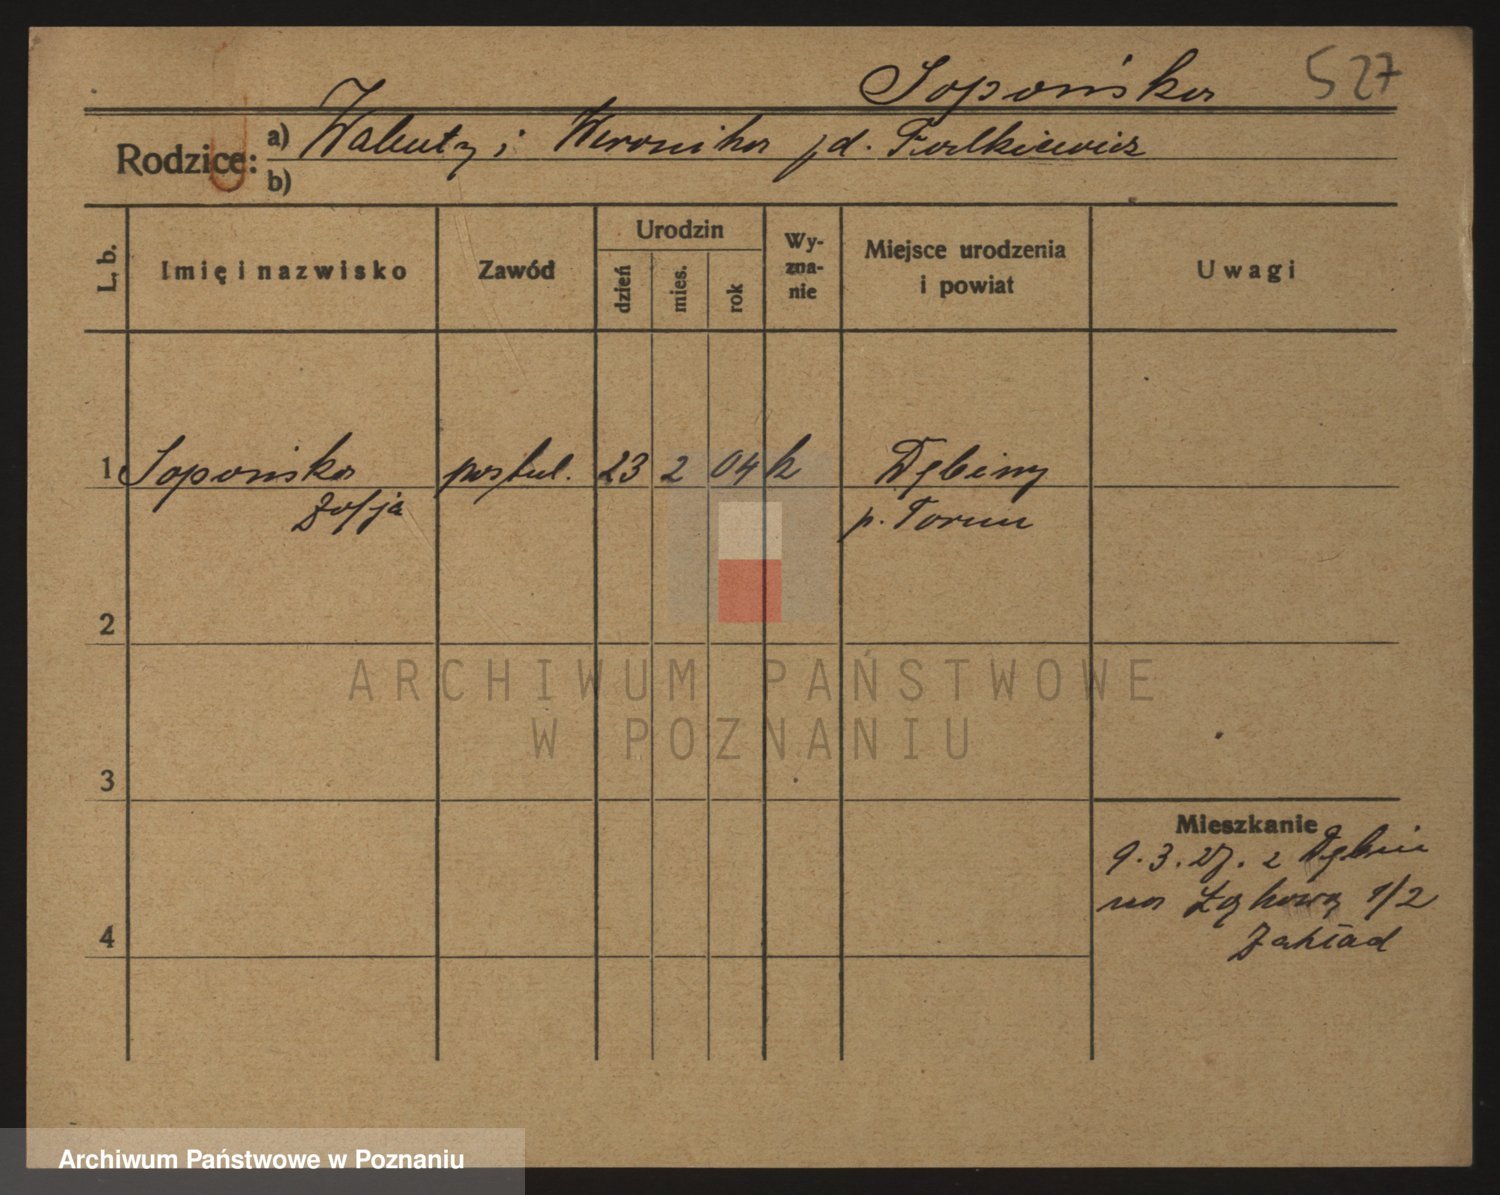 Sopońska 527
Rodzice: a) Walenty i Weronika jd. Falkiewicz
b)
L. b.
Imię i nazwisko
Zawód
Urodzin
dzień
mies.
rok
Wy-
zna-
nie
Miejsce urodzenia
i powiat
Uwagi
1 Sopońska postul. 23 2 04 k Dębiny
Zofja p. Toruń
2
3
4
Mieszkanie
9.3.27. z Dębin
na Łąkową 1/2
Zakład
ARCHIWUM PAŃSTWOWE
W POZNANIU
Archiwum Państwowe w Poznaniu